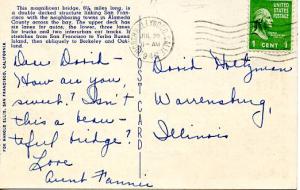 This magnificent bridge, 8¼ miles long, is
a double decked structure linking San Fran-
cisco with the neighboring towns in Alameda
County across the bay. The upper deck has
six lanes for autos, the lower, three lanes
for trucks and two interurban car tracks. It
stretches from San Francisco to Yerba Buena
Island, then obliquely to Berkeley and Oak-
land.
Dear David-
How are you,
sweet? Isn't
this a beau-
tiful bridge?
Love
Aunt Fannie
FOR HAROLD ELLIS, SAN FRANCISCO, CALIFORNIA
POST CARD
JUL 30
1-AM
1 CENT 1
David Holtzman
Warrensburg,
Illinois